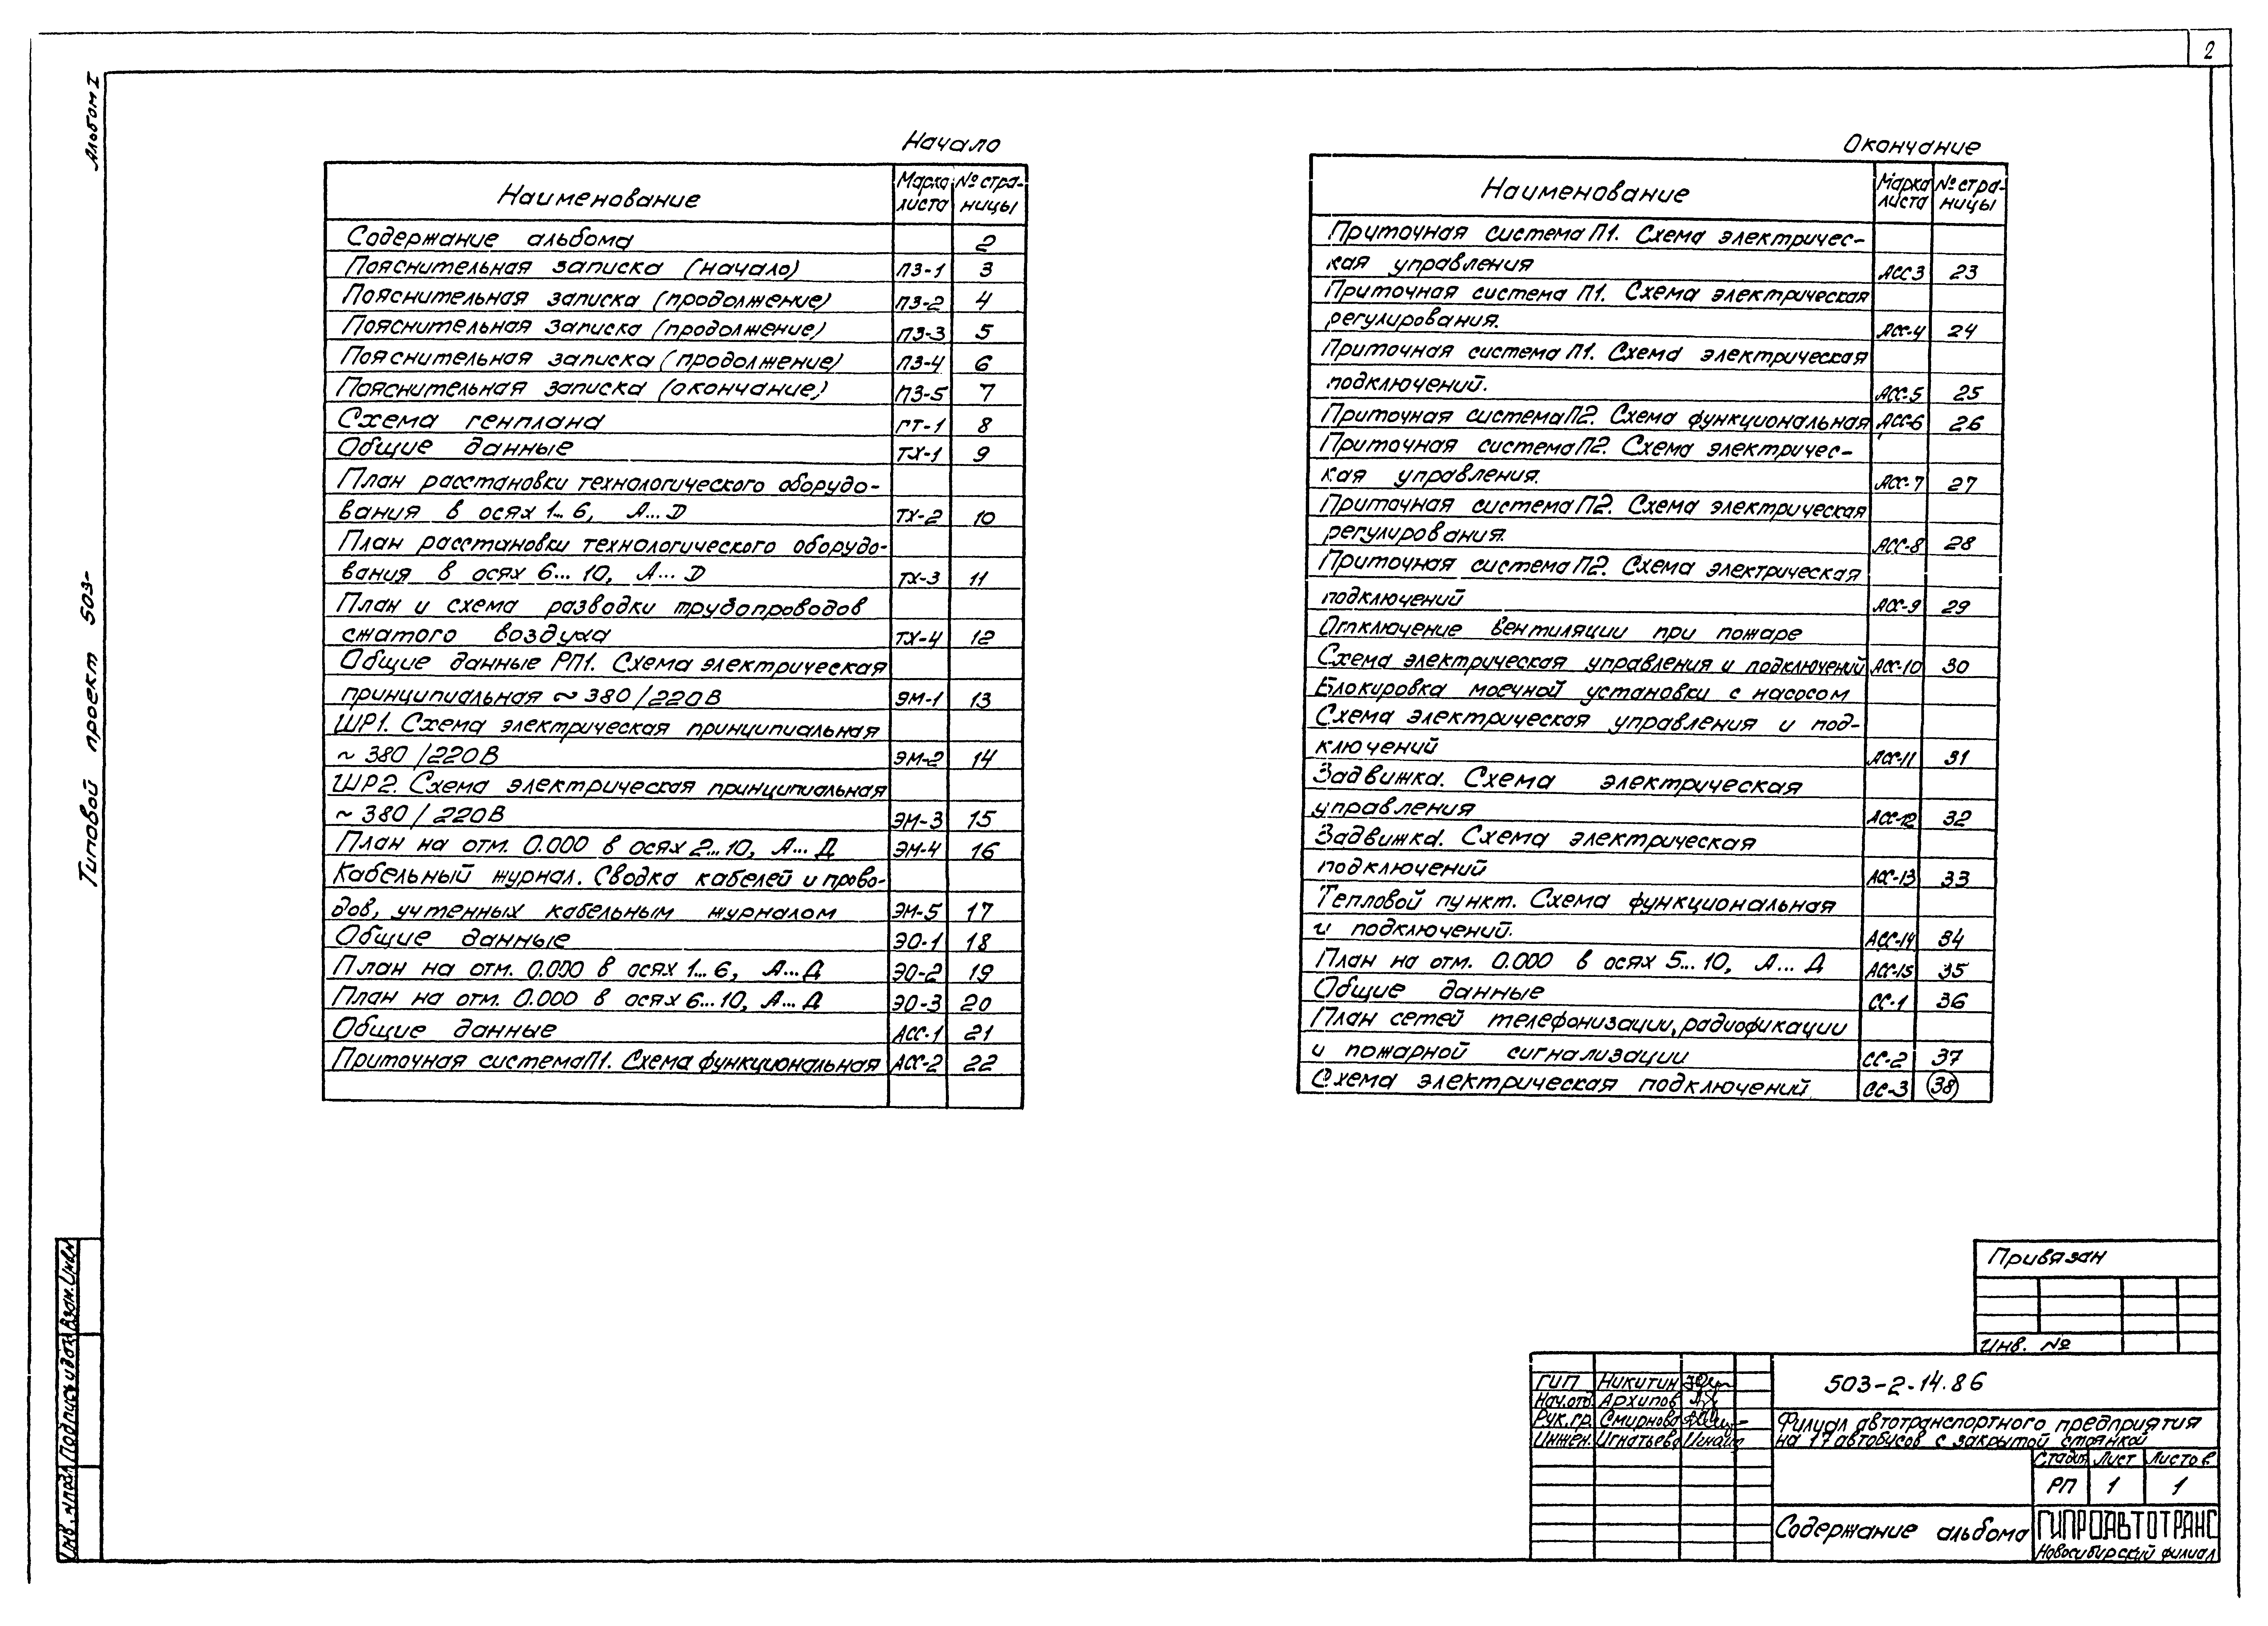 2
Альбом I
Типовой проект 503-
Начало
Наименование Марка листа № стра-ницы
Содержание альбома 2
Пояснительная записка (начало) ПЗ-1 3
Пояснительная записка (продолжение) ПЗ-2 4
Пояснительная записка (продолжение) ПЗ-3 5
Пояснительная записка (продолжение) ПЗ-4 6
Пояснительная записка (окончание) ПЗ-5 7
Схема генплана ГТ-1 8
Общие данные ТХ-1 9
План расстановки технологического оборудо-
вания в осях 1...6, А...D ТХ-2 10
План расстановки технологического оборудо-
вания в осях 6...10, А...D ТХ-3 11
План и схема разводки трубопроводов
сжатого воздуха ТХ-4 12
Общие данные РП1. Схема электрическая
принципиальная ~380/220В ЭМ-1 13
ШР1. Схема электрическая принципиальная
~380/220В ЭМ-2 14
ШР2. Схема электрическая принципиальная
~380/220В ЭМ-3 15
План на отм. 0.000 в осях 2...10, А...Д ЭМ-4 16
Кабельный журнал. Сводка кабелей и прово-
дов, учтенных кабельным журналом ЭМ-5 17
Общие данные ЭО-1 18
План на отм. 0.000 в осях 1...6, А...Д ЭО-2 19
План на отм. 0.000 в осях 6...10, А...Д ЭО-3 20
Общие данные АСС-1 21
Приточная система П1. Схема функциональная АСС-2 22
Окончание
Наименование Марка листа № стра-ницы
Приточная система П1. Схема электричес-
кая управления АСС3 23
Приточная система П1. Схема электрическая
регулирования. АСС-4 24
Приточная система П1. Схема электрическая
подключений. АСС-5 25
Приточная система П2. Схема функциональная АСС-6 26
Приточная система П2. Схема электричес-
кая управления. АСС-7 27
Приточная система П2. Схема электрическая
регулирования. АСС-8 28
Приточная система П2. Схема электрическая
подключений АСС-9 29
Отключение вентиляции при пожаре
Схема электрическая управления и подключений АСС-10 30
Блокировка моечной установки с насосом
Схема электрическая управления и под-
ключений АСС-11 31
Задвижка. Схема электрическая
управления АСС-12 32
Задвижка. Схема электрическая
подключений АСС-13 33
Тепловой пункт. Схема функциональная
и подключений. АСС-14 34
План на отм. 0.000 в осях 5...10, А...Д АСС-15 35
Общие данные СС-1 36
План сетей телефонизации, радиофикации
и пожарной сигнализации СС-2 37
Схема электрическая подключений СС-3 38
Привязан
Инв. №
ГИП Никитин
Нач.отд. Архипов
Рук.гр. Смирнова
Инжен. Игнатьева
503-2-14.86
Филиал автотранспортного предприятия
на 17 автобусов с закрытой стоянкой
Стадия Лист Листов
РП 1 1
Содержание альбома
ГИПРОАВТОТРАНС
Новосибирский филиал
Взам. Инв.N
Подпись и дата
Инв. N подл.